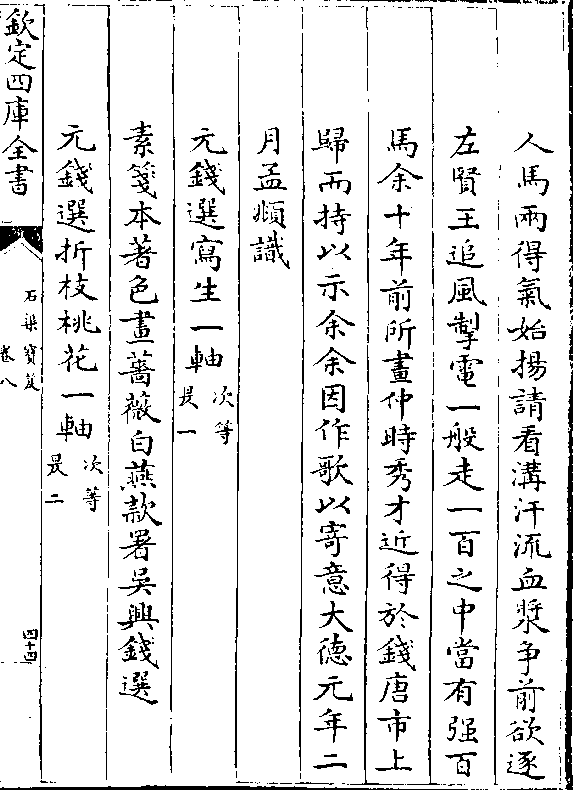 人馬兩得氣始揚請看溝汗流血漿争前欲逐
左賢王追風掣電一般走一百之中當有强百
馬余十年前所畫仲時秀才近得於錢唐市上
歸而持以示余余因作歌以寄意大德元年二
月孟頫識
元錢選寫生一軸 次等
昃一
素箋本著色畫薔薇白燕款署吳興錢選
元錢選折枝桃花一軸 次等
昃二
欽定四庫全書
石渠寶笈
卷八
四十四